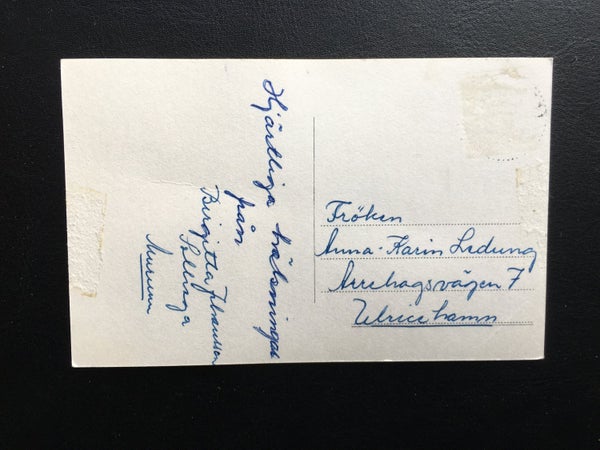 Hjärtliga hälsningar
från
Birgitta Johansson
Fröken
Anna-Karin Ledung
Arrehagsvägen 7
Ulricehamn